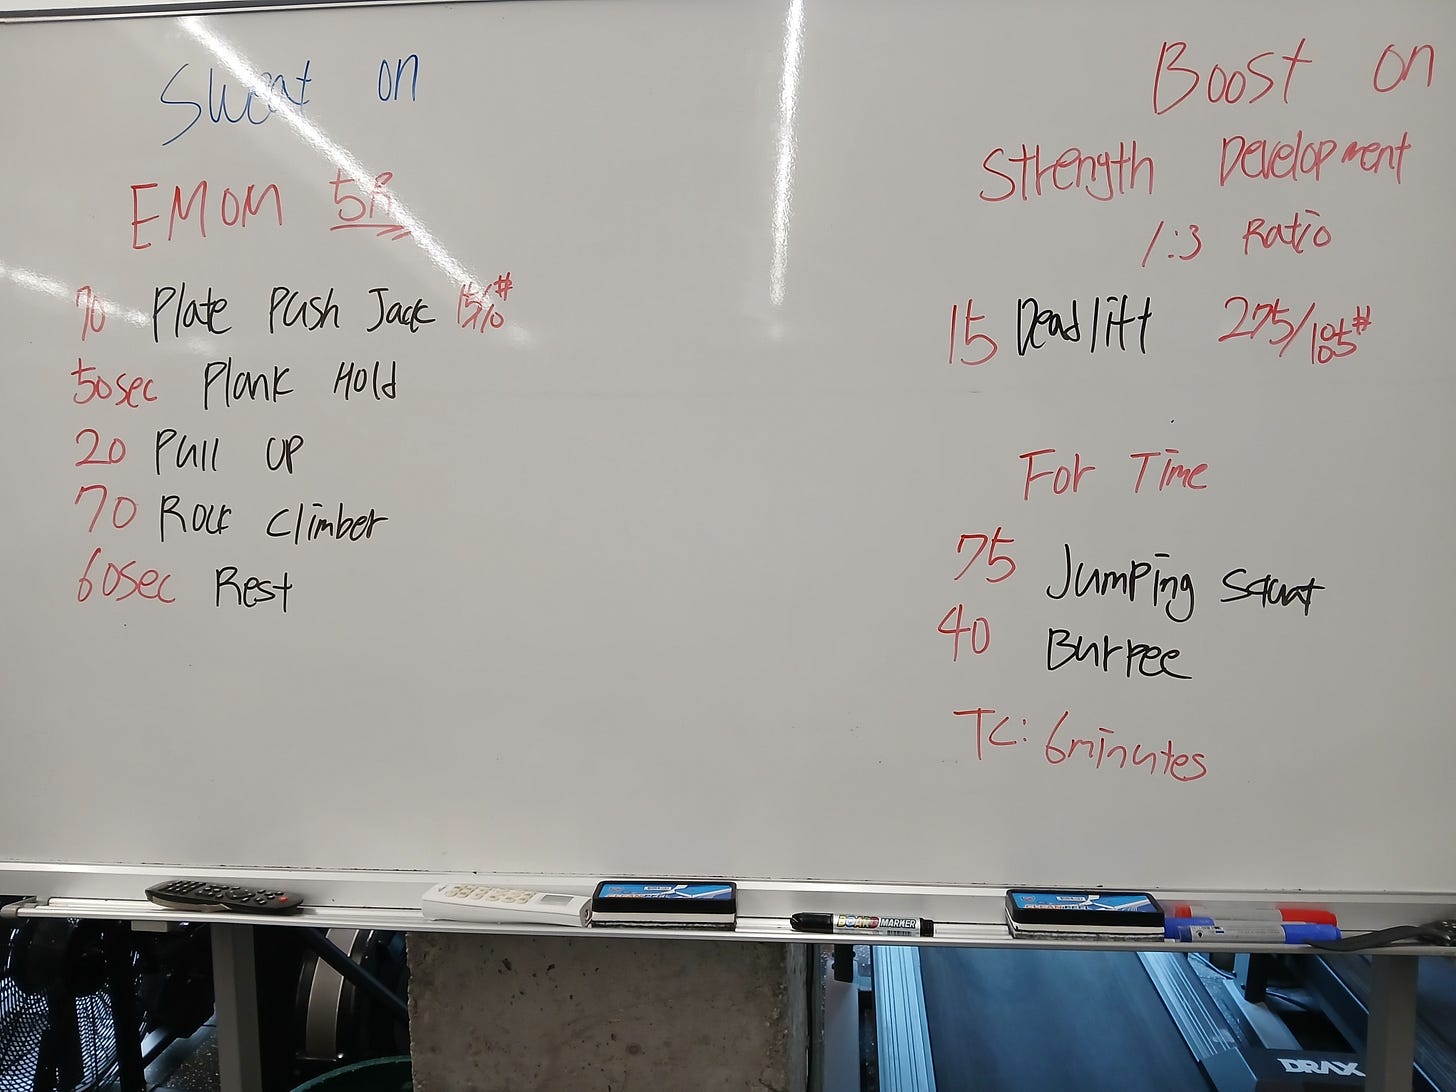 Sweat on
EMOM 5R
70 Plate Push Jack 15/10#
50sec Plank Hold
20 Pull UP
70 Rock Climber
60sec Rest
Boost on
Strength Development
1:3 Ratio
15 Deadlift 275/105#
For Time
75 Jumping Squat
40 Burpee
TC: 6minutes
BOARD MARKER
DRAX